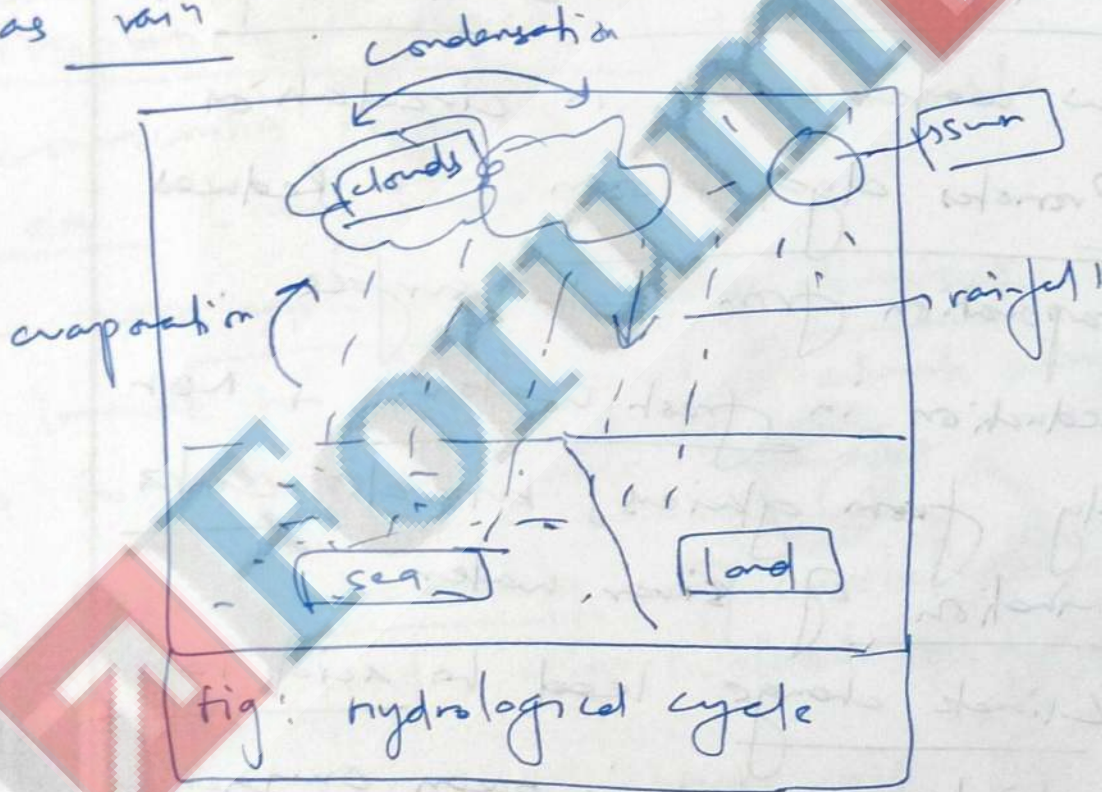 as rain
condensation
clouds
sun
evaporation
rainfall
sea
land
fig: hydrological cycle
Forum